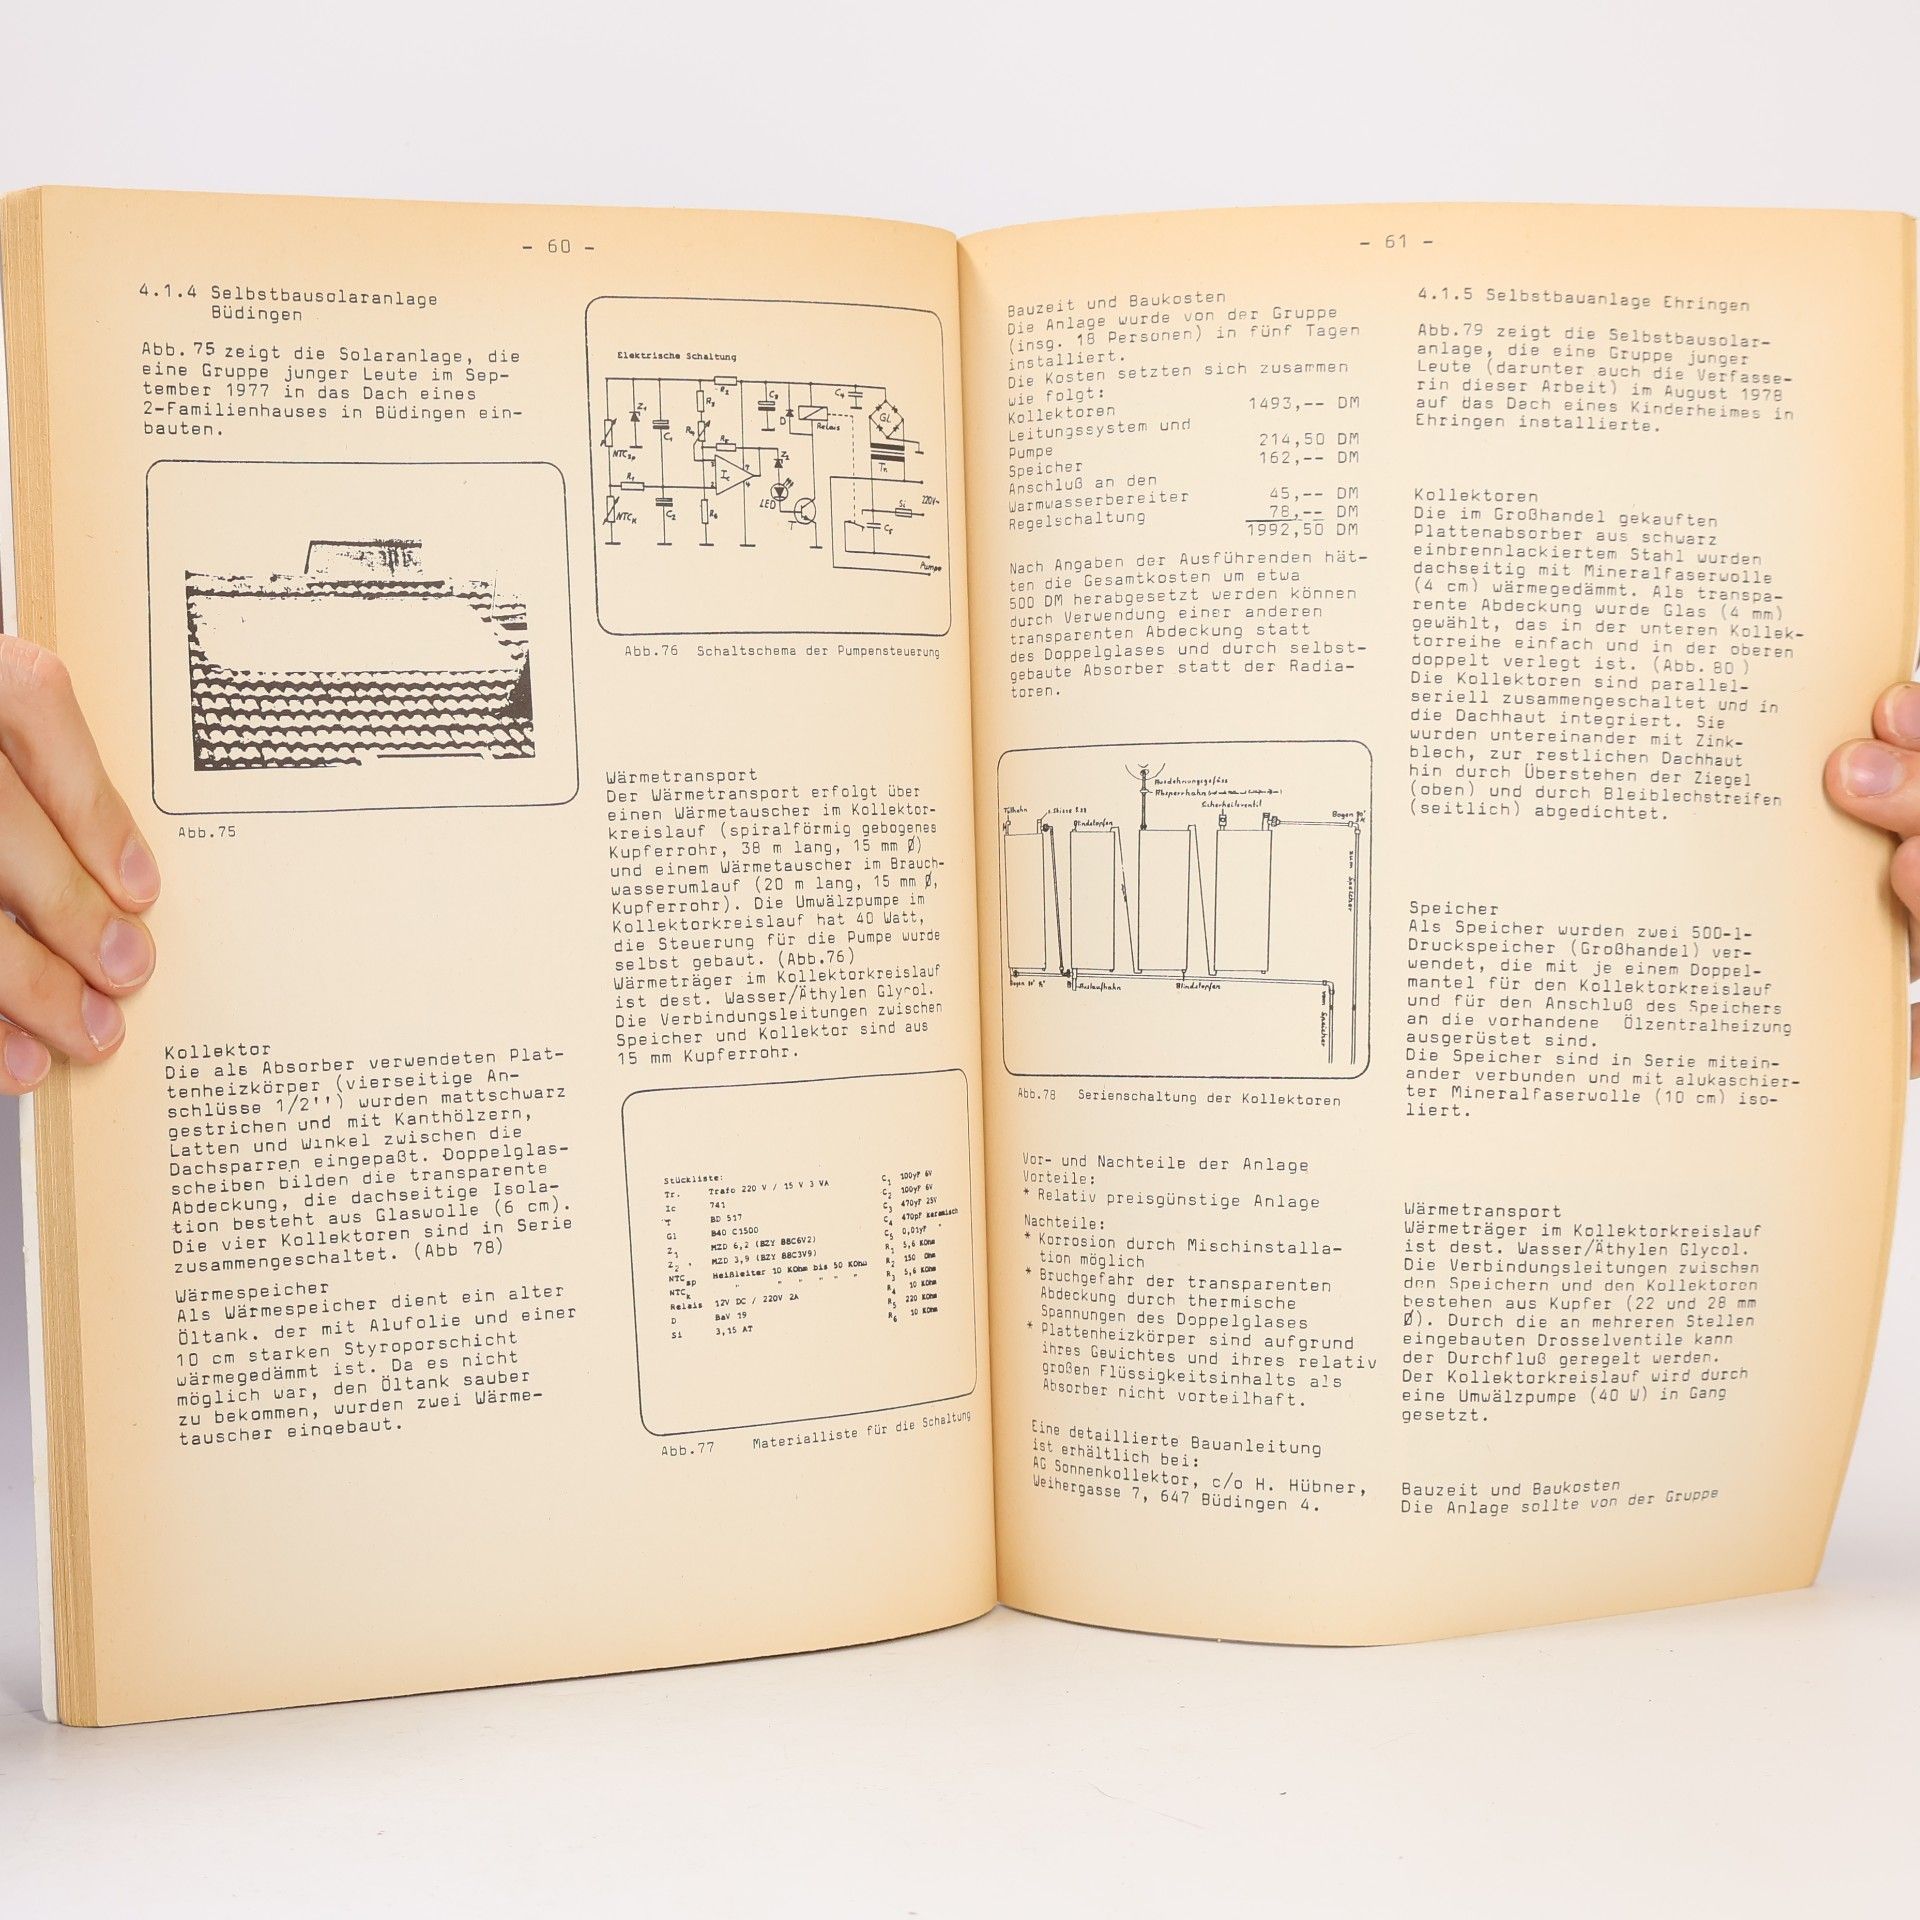 - 60 -
4.1.4 Selbstbausolaranlage
Büdingen
Abb. 75 zeigt die Solaranlage, die
eine Gruppe junger Leute im Sep-
tember 1977 in das Dach eines
2-Familienhauses in Büdingen ein-
bauten.
Abb.75
Kollektor
Die als Absorber verwendeten Plat-
tenheizkörper (vierseitige An-
schlüsse 1/2'') wurden mattschwarz
gestrichen und mit Kanthölzern,
Latten und Winkel zwischen die
Dachsparren eingepaßt. Doppelglas-
scheiben bilden die transparente
Abdeckung, die dachseitige Isola-
tion besteht aus Glaswolle (6 cm).
Die vier Kollektoren sind in Serie
zusammengeschaltet. (Abb 78)
Wärmespeicher
Als Wärmespeicher dient ein alter
Öltank. der mit Alufolie und einer
10 cm starken Styroporschicht
wärmegedämmt ist. Da es nicht
möglich war, den Öltank sauber
zu bekommen, wurden zwei Wärme-
tauscher eingebaut.
Elektrische Schaltung
R2
C4
Z1
R3
C3
D
Relais
GL
C1
R4
R5
NTCsp
Z2
Tr
R1
Ic
LED
220V~
Si
NTCK
C2
R6
T
C5
Pumpe
Abb.76 Schaltschema der Pumpensteuerung
Wärmetransport
Der Wärmetransport erfolgt über
einen Wärmetauscher im Kollektor-
kreislauf (spiralförmig gebogenes
Kupferrohr, 38 m lang, 15 mm Ø)
und einem Wärmetauscher im Brauch-
wasserumlauf (20 m lang, 15 mm Ø,
Kupferrohr). Die Umwälzpumpe im
Kollektorkreislauf hat 40 Watt,
die Steuerung für die Pumpe wurde
selbst gebaut. (Abb.76)
Wärmeträger im Kollektorkreislauf
ist dest. Wasser/Äthylen Glycol.
Die Verbindungsleitungen zwischen
Speicher und Kollektor sind aus
15 mm Kupferrohr.
Stückliste:
Tr. Trafo 220 V / 15 V 3 VA
Ic 741
T BD 517
Gl B40 C1500
Z1 MZD 6,2 (BZY 88C6V2)
Z2 " MZD 3,9 (BZY 88C3V9)
NTCsp Heißleiter 10 KOhm bis 50 KOhm
NTCk " " " " " "
Relais 12V DC / 220V 2A
D BaV 19
Si 3,15 AT
C1 100yF 6V
C2 100yF 6V
C3 470yF 25V
C4 470pF keramisch
C5 0,01yF "
R1 5,6 KOhm
R2 150 Ohm
R3 5,6 KOhm
R4 10 KOhm
R5 220 KOhm
R6 10 KOhm
Abb.77 Materialliste für die Schaltung
- 61 -
Bauzeit und Baukosten
Die Anlage wurde von der Gruppe
(insg. 18 Personen) in fünf Tagen
installiert.
Die Kosten setzten sich zusammen
wie folgt:
Kollektoren 1493,-- DM
Leitungssystem und
Pumpe 214,50 DM
Speicher 162,-- DM
Anschluß an den
Warmwasserbereiter 45,-- DM
Regelschaltung 78,-- DM
1992,50 DM
Nach Angaben der Ausführenden hät-
ten die Gesamtkosten um etwa
500 DM herabgesetzt werden können
durch Verwendung einer anderen
transparenten Abdeckung statt
des Doppelglases und durch selbst-
gebaute Absorber statt der Radia-
toren.
Ausdehnungsgefäss
Absperrhahn
Sicherheitsventil
Füllhahn
Blindstopfen
Bogen 90°
zum Speicher
Bogen 90°
Auslaufhahn
Blindstopfen
vom Speicher
Abb.78 Serienschaltung der Kollektoren
Vor- und Nachteile der Anlage
Vorteile:
* Relativ preisgünstige Anlage
Nachteile:
* Korrosion durch Mischinstalla-
tion möglich
* Bruchgefahr der transparenten
Abdeckung durch thermische
Spannungen des Doppelglases
* Plattenheizkörper sind aufgrund
ihres Gewichtes und ihres relativ
großen Flüssigkeitsinhalts als
Absorber nicht vorteilhaft.
Eine detaillierte Bauanleitung
ist erhältlich bei:
AG Sonnenkollektor, c/o H. Hübner,
Weihergasse 7, 647 Büdingen 4.
4.1.5 Selbstbauanlage Ehringen
Abb.79 zeigt die Selbstbausolar-
anlage, die eine Gruppe junger
Leute (darunter auch die Verfasse-
rin dieser Arbeit) im August 1978
auf das Dach eines Kinderheimes in
Ehringen installierte.
Kollektoren
Die im Großhandel gekauften
Plattenabsorber aus schwarz
einbrennlackiertem Stahl wurden
dachseitig mit Mineralfaserwolle
(4 cm) wärmegedämmt. Als transpa-
rente Abdeckung wurde Glas (4 mm)
gewählt, das in der unteren Kollek-
torreihe einfach und in der oberen
doppelt verlegt ist. (Abb. 80 )
Die Kollektoren sind parallel-
seriell zusammengeschaltet und in
die Dachhaut integriert. Sie
wurden untereinander mit Zink-
blech, zur restlichen Dachhaut
hin durch Überstehen der Ziegel
(oben) und durch Bleiblechstreifen
(seitlich) abgedichtet.
Speicher
Als Speicher wurden zwei 500-l-
Druckspeicher (Großhandel) ver-
wendet, die mit je einem Doppel-
mantel für den Kollektorkreislauf
und für den Anschluß des Speichers
an die vorhandene Ölzentralheizung
ausgerüstet sind.
Die Speicher sind in Serie mitein-
ander verbunden und mit alukaschier-
ter Mineralfaserwolle (10 cm) iso-
liert.
Wärmetransport
Wärmeträger im Kollektorkreislauf
ist dest. Wasser/Äthylen Glycol.
Die Verbindungsleitungen zwischen
den Speichern und den Kollektoren
bestehen aus Kupfer (22 und 28 mm
Ø). Durch die an mehreren Stellen
eingebauten Drosselventile kann
der Durchfluß geregelt werden.
Der Kollektorkreislauf wird durch
eine Umwälzpumpe (40 W) in Gang
gesetzt.
Bauzeit und Baukosten
Die Anlage sollte von der Gruppe